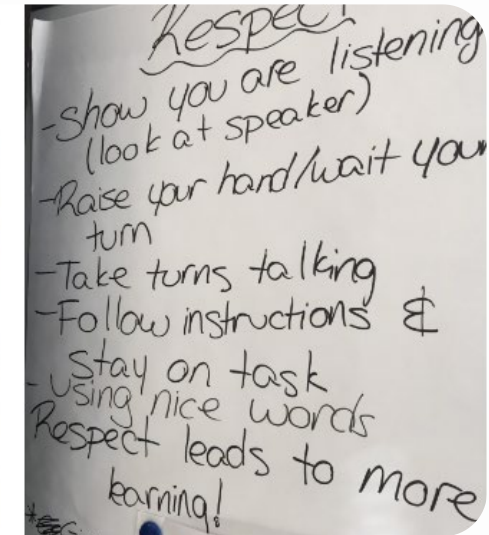 Respect
-Show you are listening
(look at speaker)
-Raise your hand/wait your
turn
-Take turns talking
-Follow instructions &
Stay on task
-using nice words
Respect leads to more
learning!